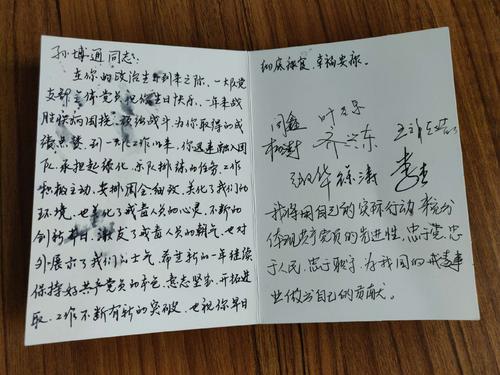 孙博通同志：
在你的政治生日到来之际，一大队党
支部全体党员祝你生日快乐。一年来战
胜疾病困扰，顽强战斗，为你取得的成
绩点赞。到一大队工作以来，你迅速融入团
队，承担起绿化、乐队排练的任务，工作
积极主动，安排周全细致，美化了我们的
环境，也美化了戒毒人员的心灵，不断的
创新节目，激发了戒毒人员的朝气，也对
外展示了我们的士气，希望新的一年继续
保持好共产党员的本色，意志坚定，开拓进
取，工作不断有新的突破，也祝你早日
彻底康复，幸福安康。
齐兴东
我将用自己的实际行动来充分
体现共产党员的先进性，忠于党，忠
于人民，忠于职守，为我国的戒毒事
业做出自己的贡献。